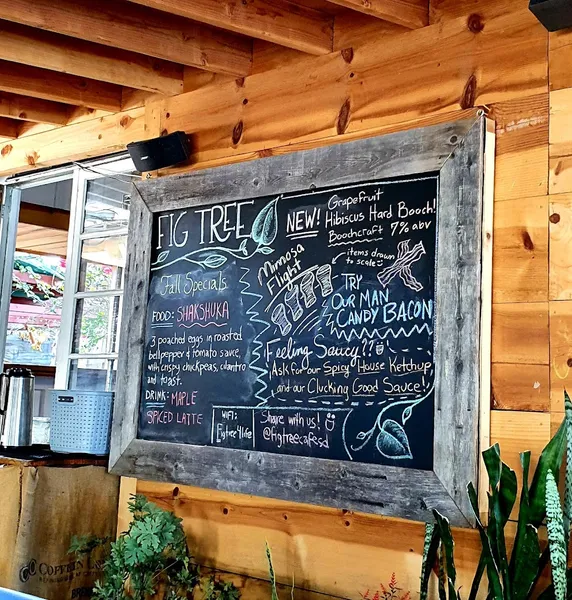 FIG TREE
Fall Specials
FOOD: SHAKSHUKA
3 poached eggs in roasted
bell pepper & tomato sauce,
with crispy chickpeas, cilantro
and toast.
DRINK: MAPLE
SPICED LATTE
NEW!
Grapefruit
Hibiscus Hard Booch!
Boochcraft 7% abv
Mimosa
Flight
items drawn
to scale
TRY
OUR MAN
CANDY BACON
¡Feeling Saucy??
Ask for our Spicy House Ketchup
and our Clucking Good Sauce!
WIFI:
Figtree4life
Share with us!
@figtreecafesd